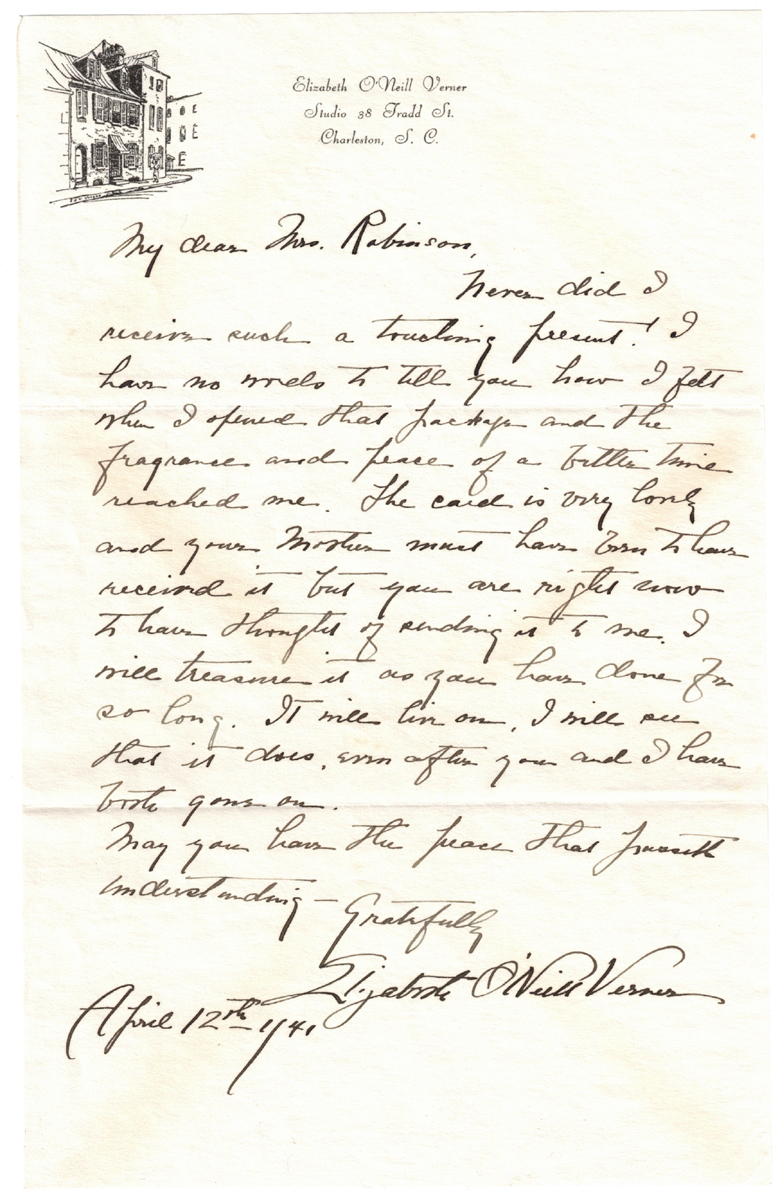 Elizabeth O'Neill Verner
Studio 38 Tradd St.
Charleston, S. C.
My dear Mrs. Robinson,
Never did I
receive such a touching present! I
have no words to tell you how I felt
when I opened that package and the
fragrance and peace of a better time
reached me. The card is very lovely
and your Mother must have been to have
received it but you are right now
to have thought of sending it to me. I
will treasure it as you have done for
so long. It will live on, I will see
that it does, even after you and I have
both gone on.
May you have the peace that passeth
understanding —
Gratefully
Elizabeth O'Neill Verner
April 12th 1941